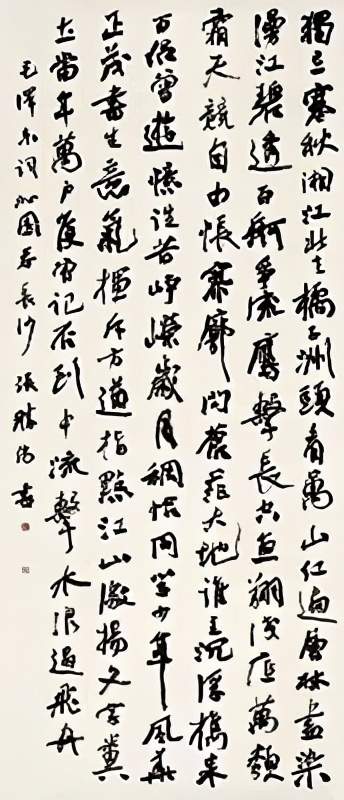 獨立寒秋湘江北去橘子洲頭看萬山红遍層林盡染
漫江碧透百舸爭流鷹擊長空魚翔淺底萬類
霜天競自由悵寥廓問蒼茫大地誰主沉浮攜來
百侶曾遊憶往昔崢嶸歲月稠恰同學少年風華
正茂書生意氣揮斥方遒指點江山激揚文字糞
土當年萬戶侯曾記否到中流擊水浪遏飛舟
毛澤東词沁園春長沙張勝偉書